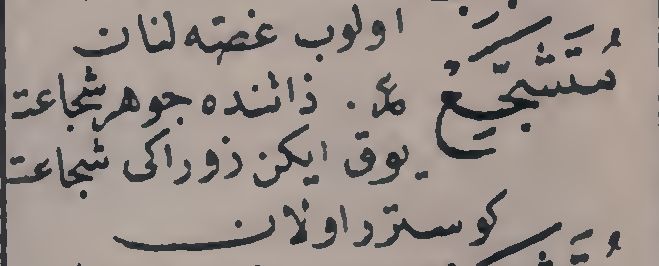 اولوب غصه لنان
مُتَشَجِّعْ ع. ذاتنده جوهر شجاعت
يوق ايكن زوراكى شجاعت
كوستر اولان